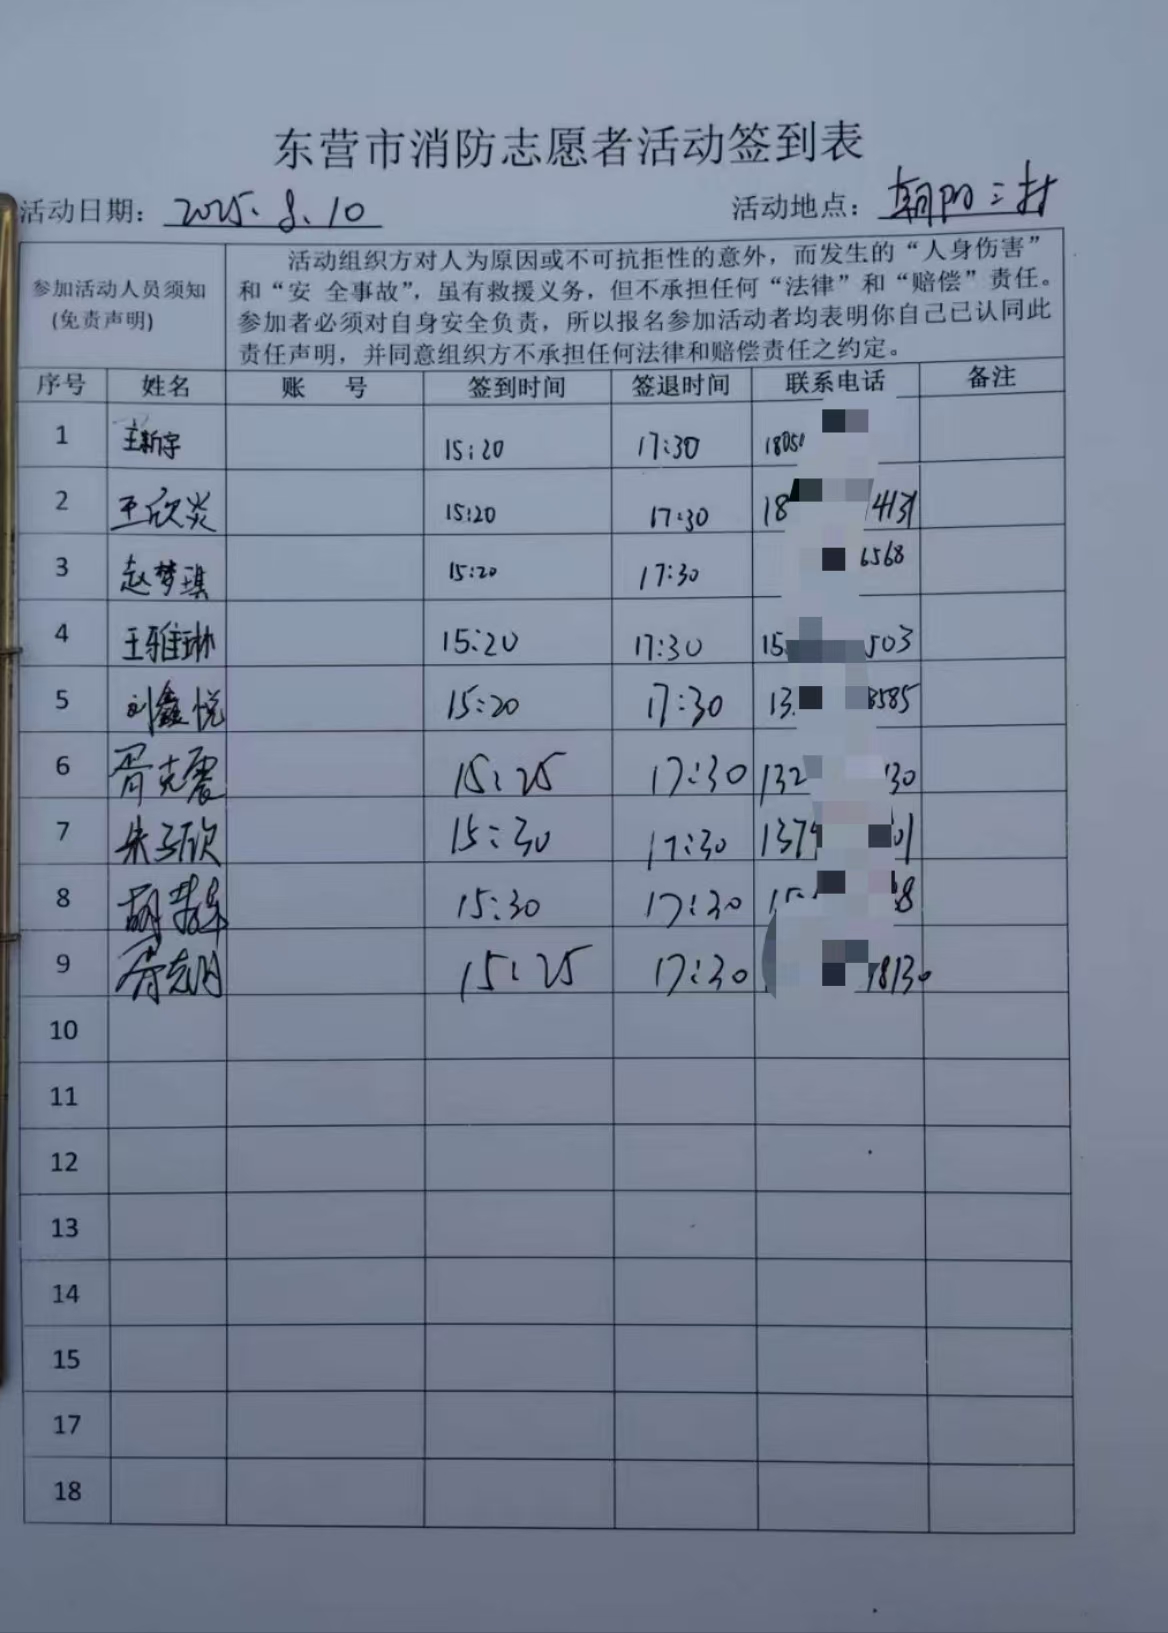 东营市消防志愿者活动签到表
活动日期: 2025.8.10 活动地点: 朝阳三村
参加活动人员须知
(免责声明)
活动组织方对人为原因或不可抗拒性的意外，而发生的“人身伤害”
和“安 全事故”，虽有救援义务，但不承担任何“法律”和“赔偿”责任。
参加者必须对自身安全负责，所以报名参加活动者均表明你自己已认同此
责任声明，并同意组织方不承担任何法律和赔偿责任之约定。
序号 姓名 账 号 签到时间 签退时间 联系电话 备注
1 王新宇 15:20 17:30 1805
2 王欣炎 15:20 17:30 18 4131
3 赵梦琪 15:20 17:30 6568
4 王雅琳 15:20 17:30 15 503
5 刘鑫悦 15:20 17:30 13 8585
6 胥克震 15:25 17:30 132 30
7 朱子欣 15:30 17:30 137 01
8 胡 15:30 17:30 15 8
9 胥志明 15:25 17:30 18130
10
11
12
13
14
15
17
18